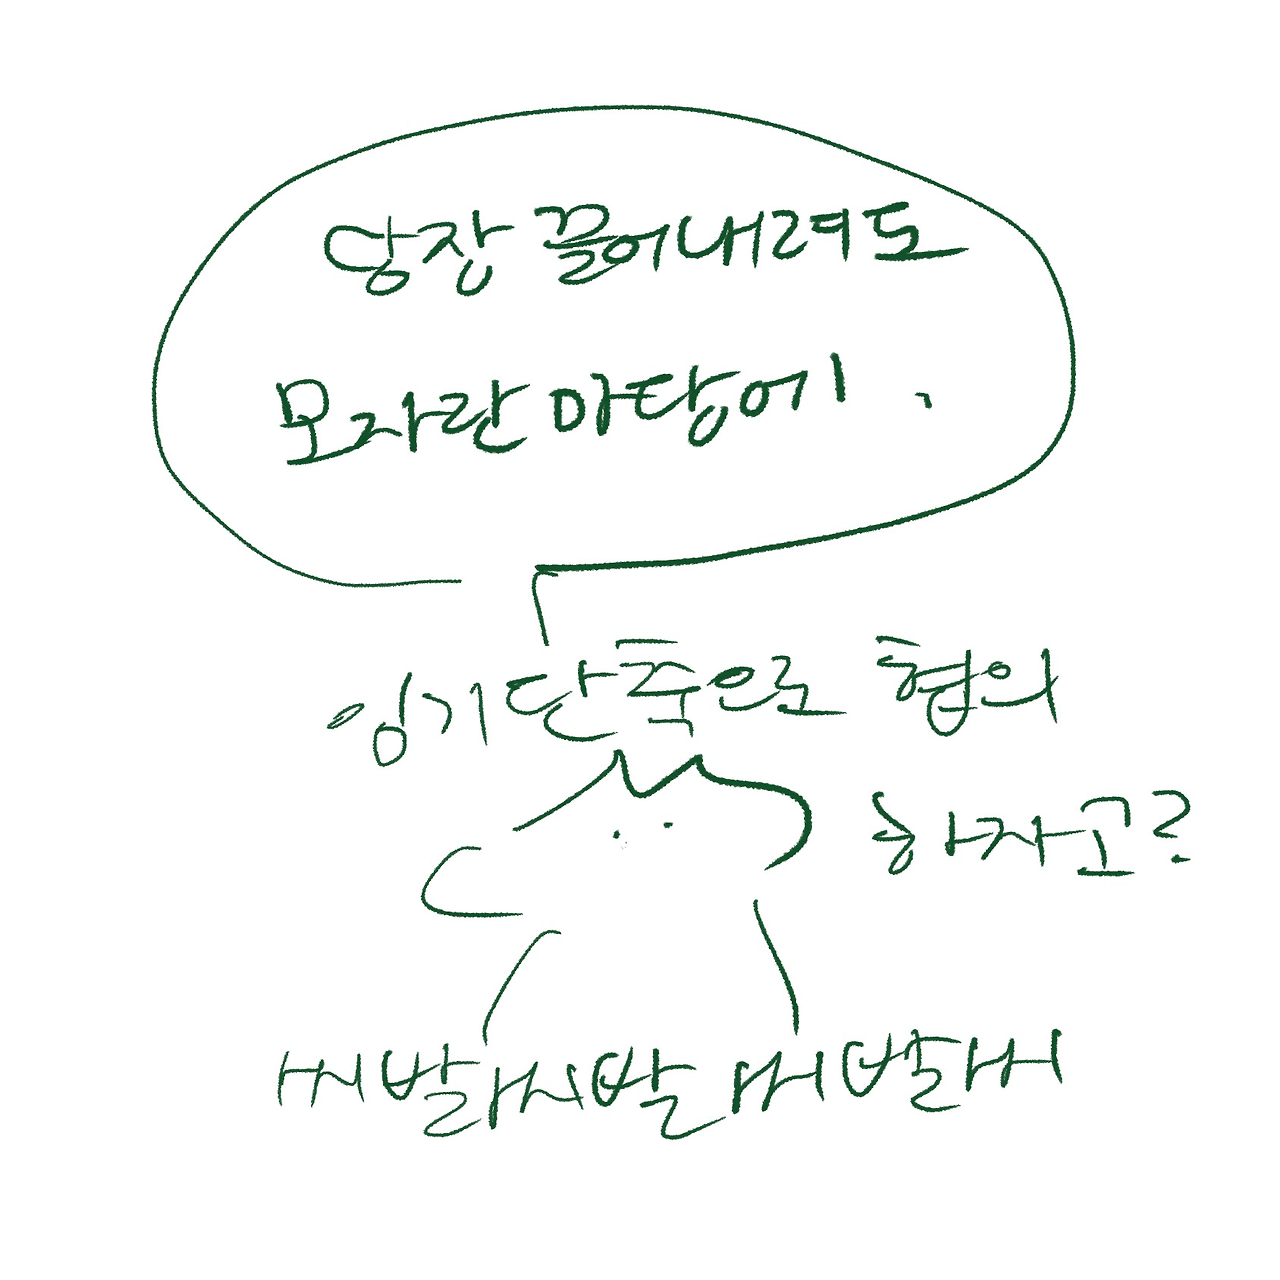 당장 끌어내려도
모자란 마당에,
임기단축으로 협의
하자고?
씨발씨발씨발씨